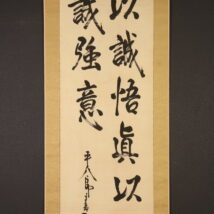 以誠悟眞以
誠強意
平八郎書